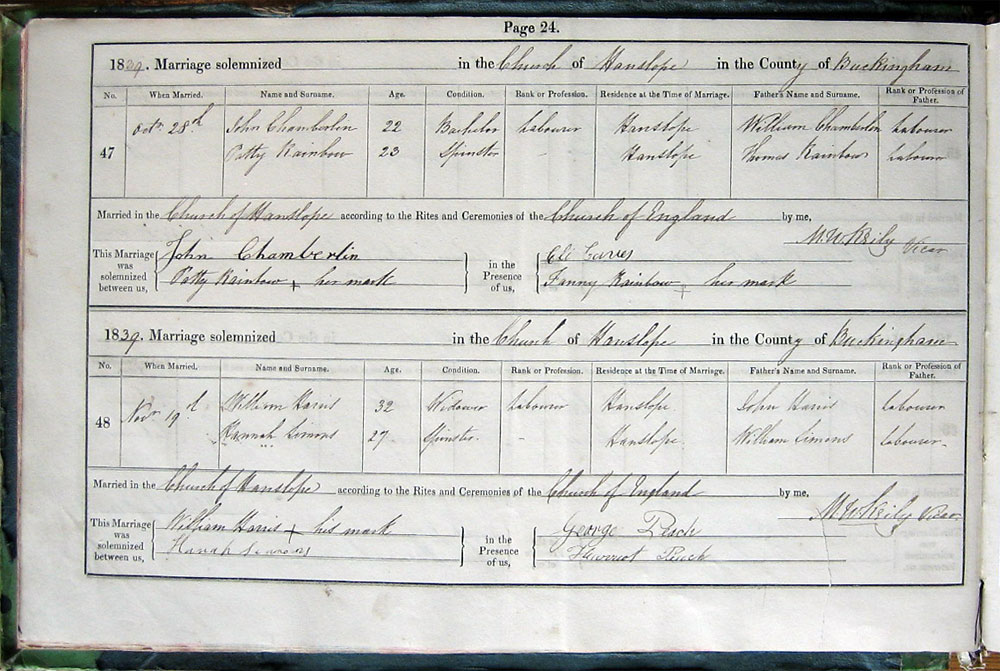 Page 24.
1839. Marriage solemnized in the Church of Hanslope in the County of Buckingham
No. When Married. Name and Surname. Age. Condition. Rank or Profession. Residence at the Time of Marriage. Father's Name and Surname. Rank or Profession of Father.
47 Octr 28th John Chamberlin 22 Bachelor Labourer Hanslope William Chamberlin Labourer
Patty Rainbow 23 Spinster - Hanslope Thomas Rainbow Labourer
Married in the Church of Hanslope according to the Rites and Ceremonies of the Church of England by me,
M. W. Reily Vicar
This Marriage was solemnized between us, John Chamberlin in the Presence of us, Eli Eaves
Patty Rainbow + her mark Fanny Rainbow + her mark
1839. Marriage solemnized in the Church of Hanslope in the County of Buckingham
No. When Married. Name and Surname. Age. Condition. Rank or Profession. Residence at the Time of Marriage. Father's Name and Surname. Rank or Profession of Father.
48 Novr 19th William Harris 32 Widower Labourer Hanslope John Harris Labourer
Hannah Simons 27 Spinster - Hanslope William Simons Labourer
Married in the Church of Hanslope according to the Rites and Ceremonies of the Church of England by me,
M. W. Reily Vicar
This Marriage was solemnized between us, William Harris + his mark in the Presence of us, George Pesch